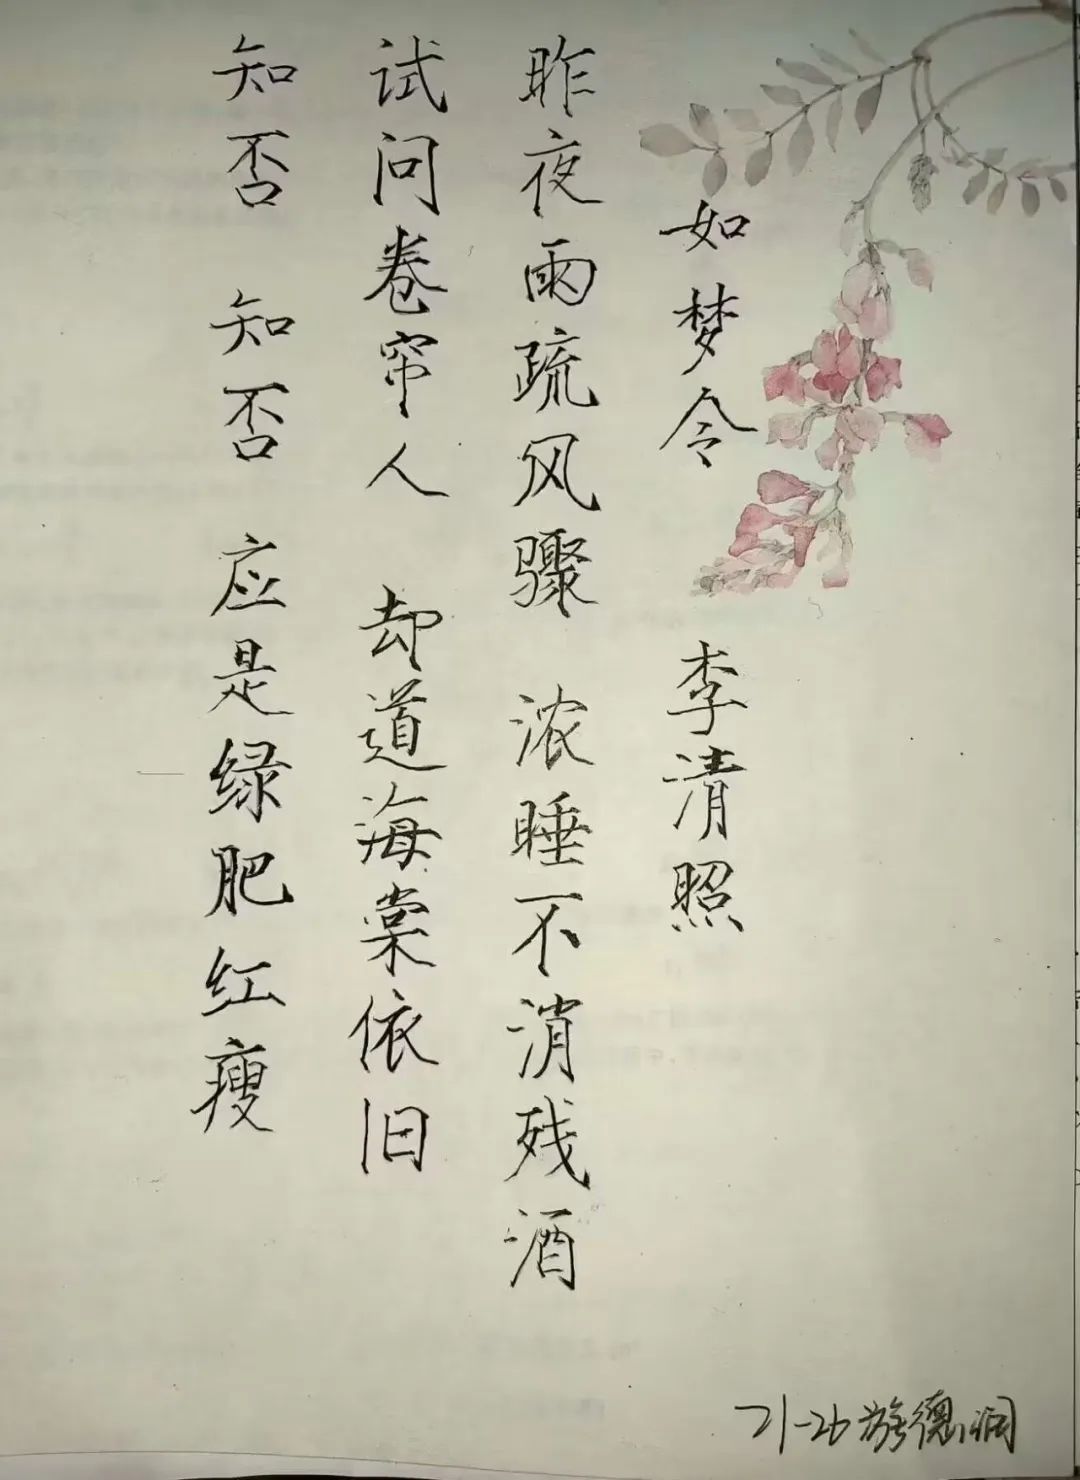 如梦令 李清照
昨夜雨疏风骤 浓睡不消残酒
试问卷帘人 却道海棠依旧
知否 知否 应是绿肥红瘦
21-26 德润